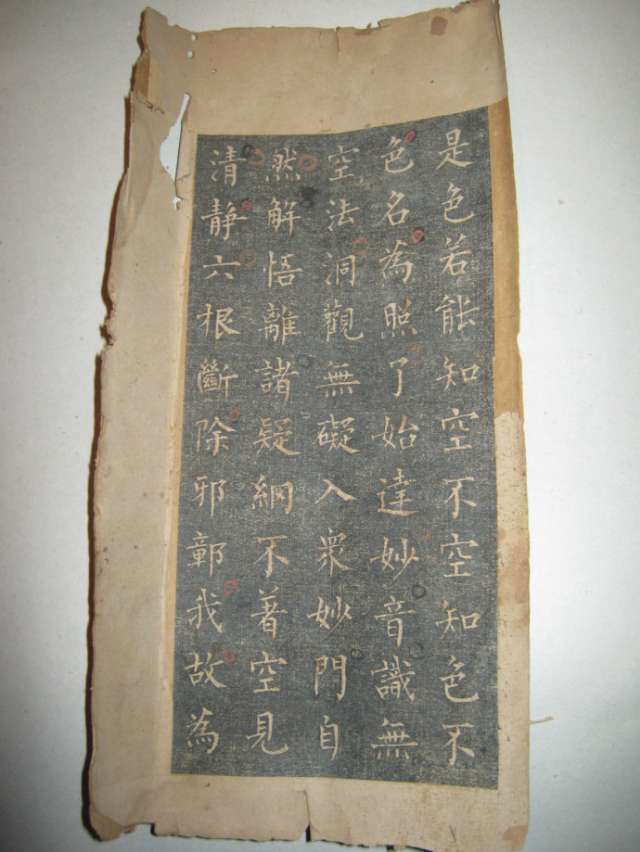 是色若能知空不空知色不
色名為照了始達妙音識無
空法洞觀無礙入衆妙門自
然解悟離諸疑網不著空見
清静六根斷除邪鄣我故為